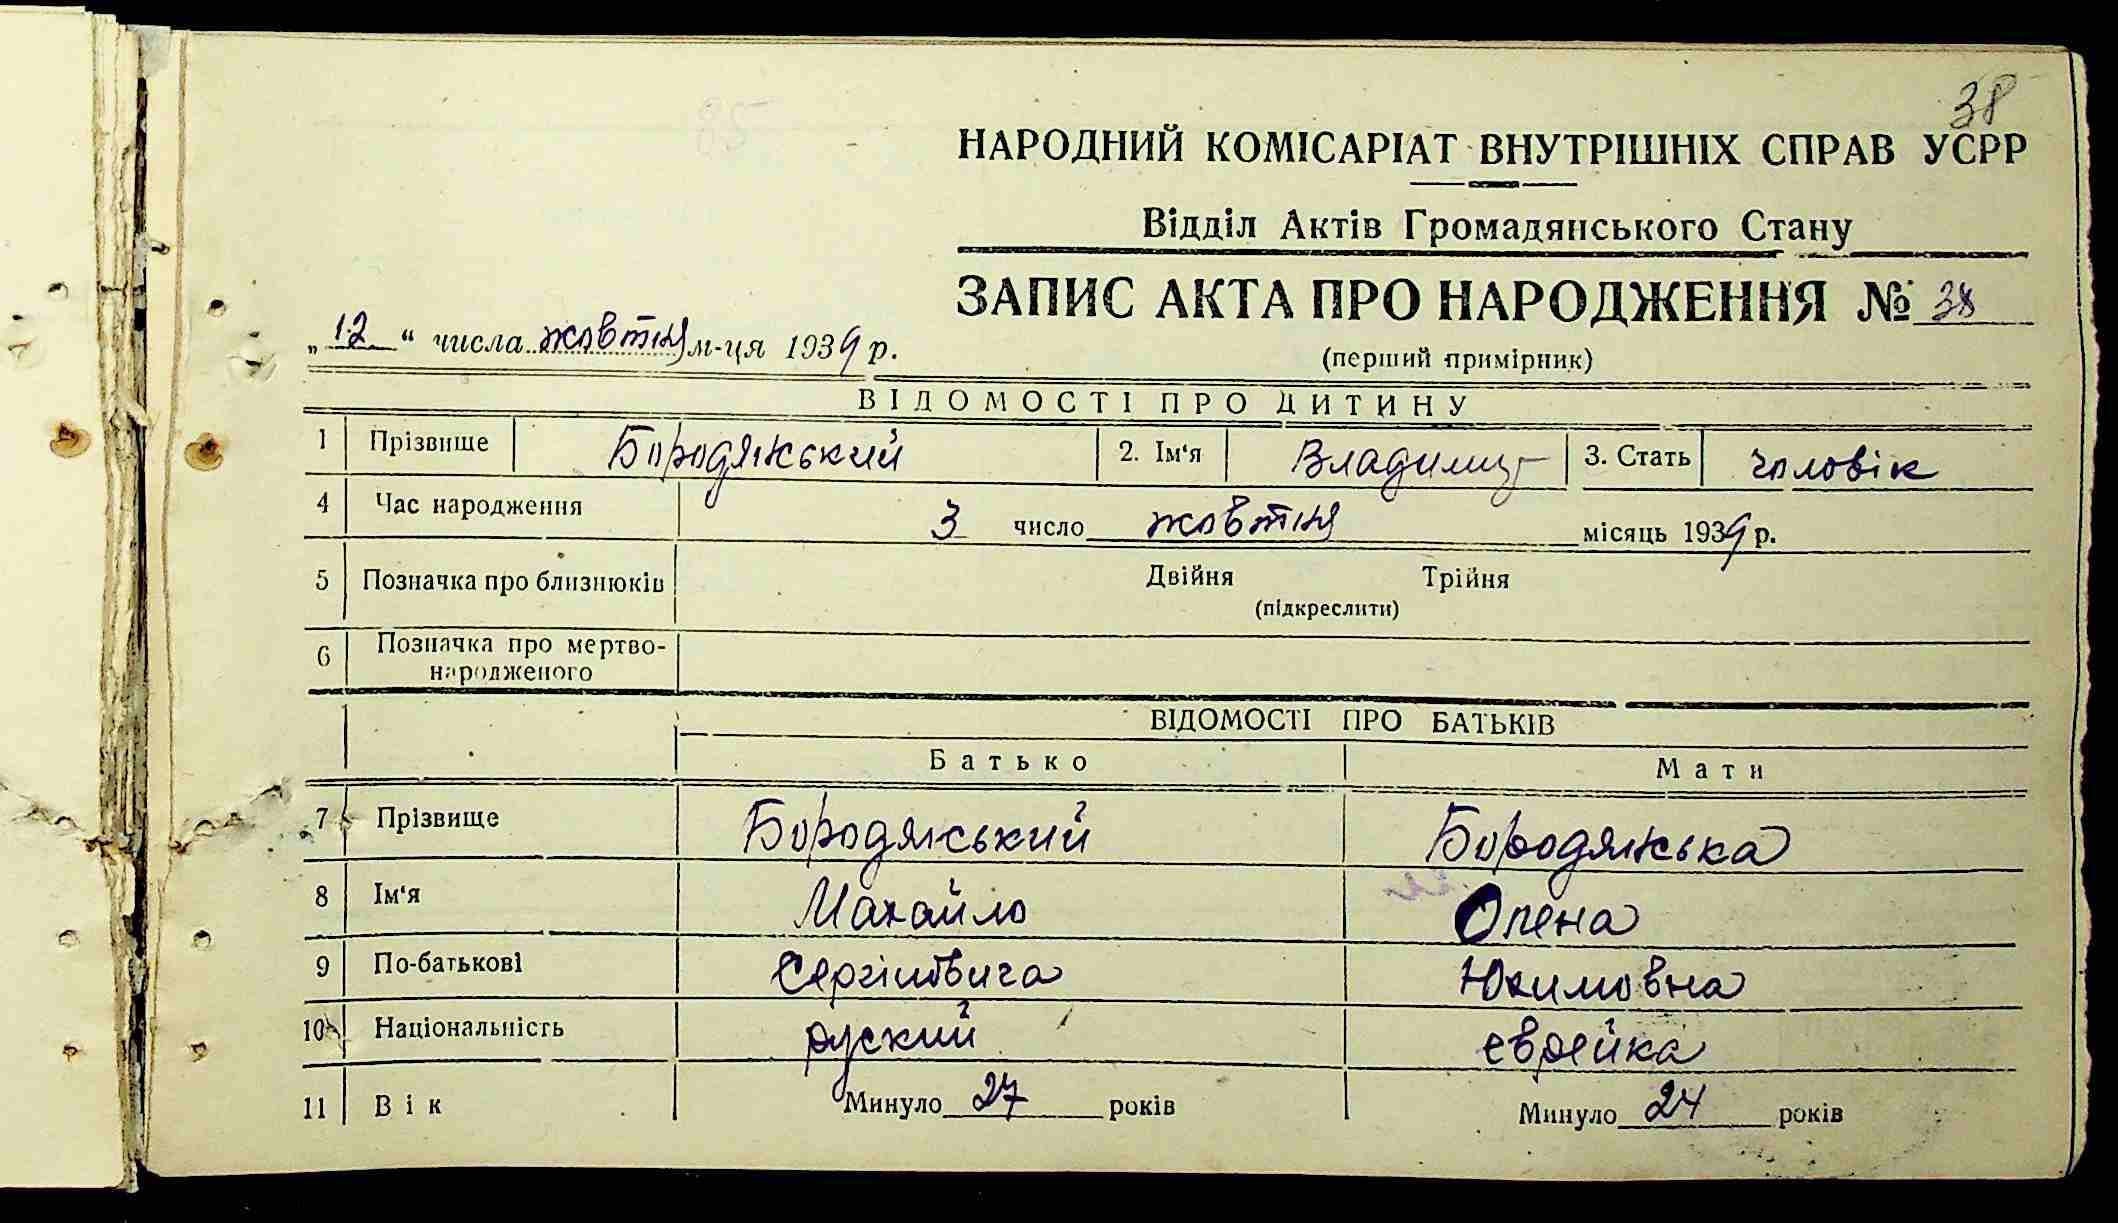 38
НАРОДНИЙ КОМІСАРІАТ ВНУТРІШНІХ СПРАВ УСРР
Відділ Актів Громадянського Стану
ЗАПИС АКТА ПРО НАРОДЖЕННЯ № 38
„12“ числа жовтня м-ця 1939 р.
(перший примірник)
ВІДОМОСТІ ПРО ДИТИНУ
1 Прізвище Бородянський 2. Ім‘я Владимир 3. Стать чоловік
4 Час народження 3 число жовтня місяць 1939 р.
5 Позначка про близнюків Двійня Трійня
(підкреслити)
6 Позначка про мертво-
народженого
ВІДОМОСТІ ПРО БАТЬКІВ
Батько Мати
7 Прізвище Бородянський Бородянська
8 Ім‘я Михайло Олена
9 По-батькові Сергійовича Юхимовна
10 Національність руский еврейка
11 Вік Минуло 27 років Минуло 24 років